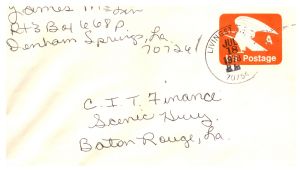 James
Rt 3 Box 668 P
Denham Springs, La
70726
A
Postage
C. I. T. Finance
Scenic Hwy.
Baton Rouge, La.